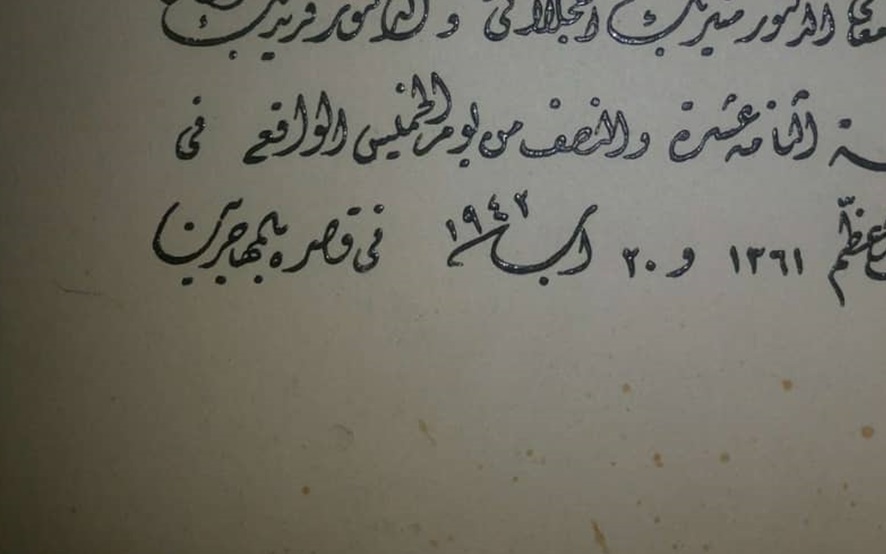 الدكتور منير بك العجلاني والدكتور فريد بك
الثامنة عشرة والنصف من يوم الخميس الواقع في
المعظم ١٣٦١ و ٢٠ آب سنة ١٩٤٢ في قصره بالمهاجرين